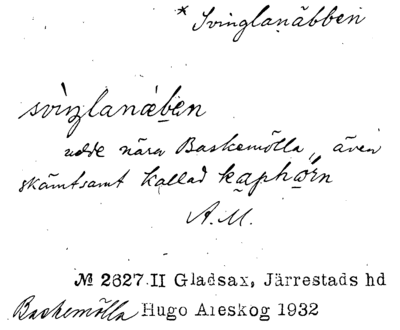 * Svinglanäbben
svìŋlanæbɐn
udde nära Baskemölla, även
skämtsamt kallad kaphörn
A.M.
№ 2627 II Gladsax, Järrestads hd
Baskemölla Hugo Areskog 1932